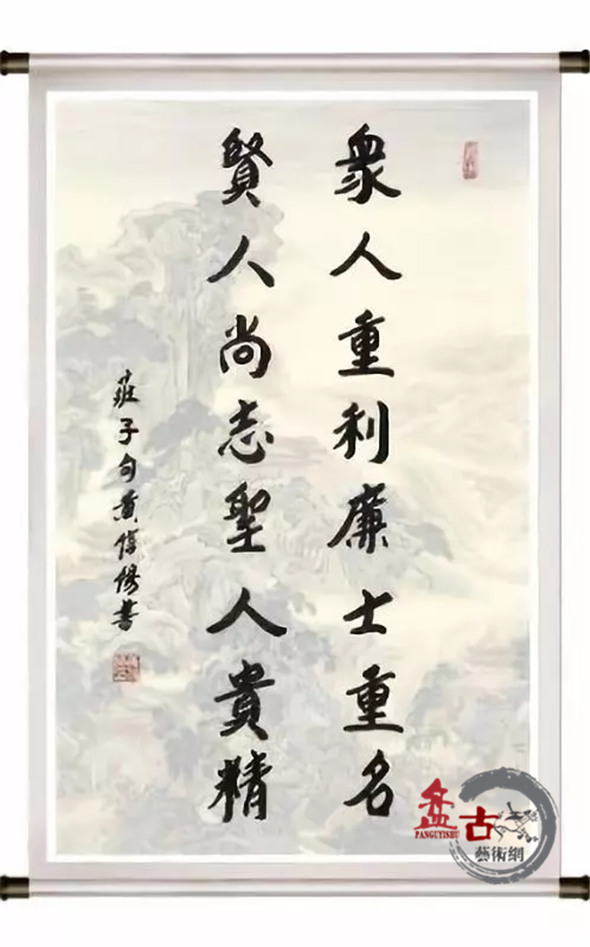 衆人重利廉士重名
賢人尚志聖人貴精
莊子句黄俊傑書
盘古
PANGUYISHU
藝術網